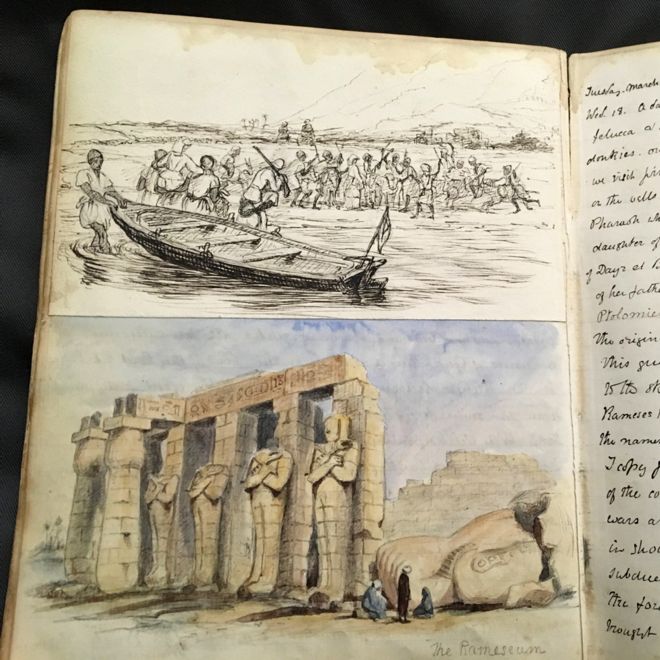 The Rameseum
Tuesday. March
Wed. 18. A da
felucca a
donkies. on
we visit
on the walls
Pharaoh wh
daughter of
of Dayr et B
of her fathe
Ptolomies
the origin
This gre
to the
Rameses
the name
I copy
of the co
wars a
in shor
subdue
the for
brought